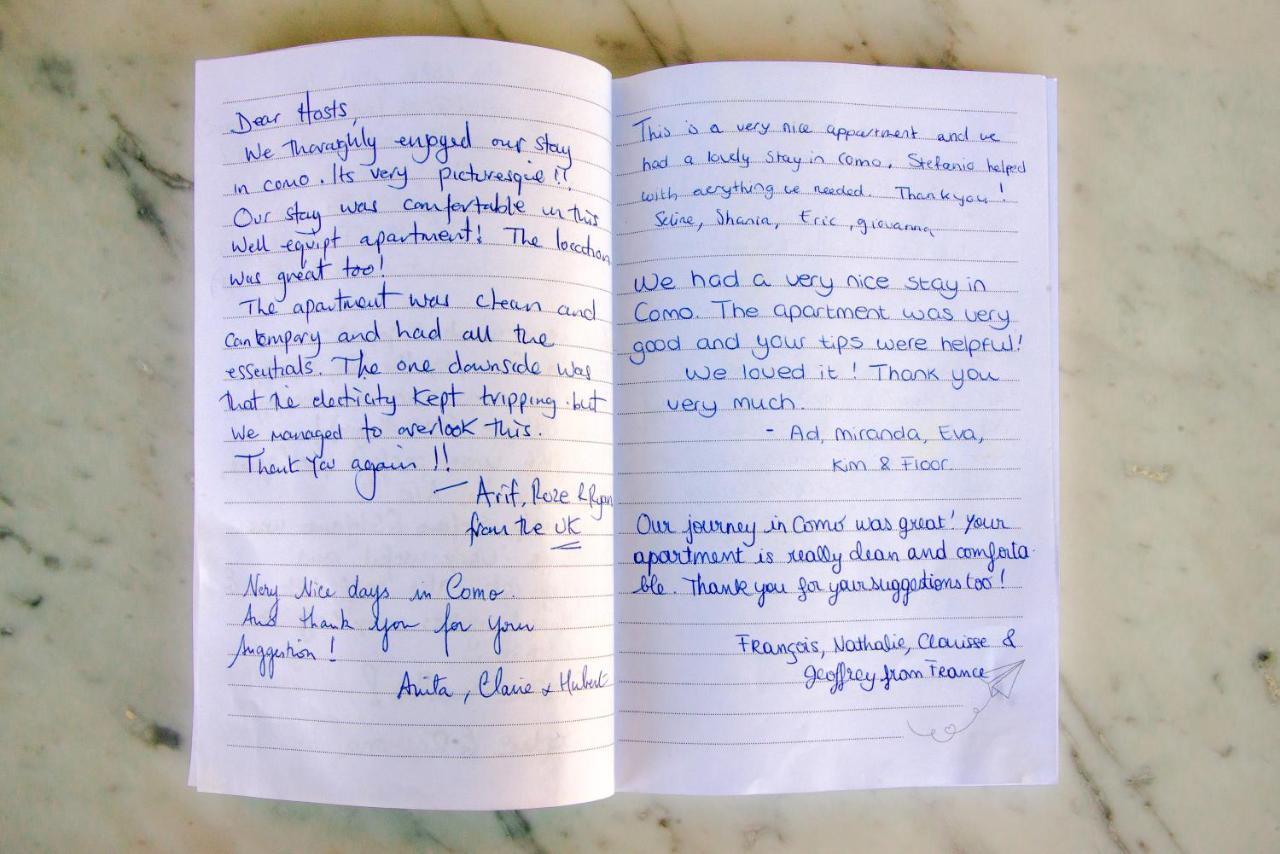 Dear Hosts,
We thoraghly enjoyed our stay
in como. Its very picturesque!!
Our stay was comfortable in this
well equipt apartment! The location
was great too!
The apartment was clean and
contempary and had all the
essentials. The one downside was
that the electicity kept tripping but
we managed to overlook this.
Thank you again!!
— Arif, Roze & Ryan
from the UK
Very Nice days in Como.
And thank you for your
suggestion!
Anita, Claire & Hubert
This is a very nice appartment and we
had a lovely stay in como. Stefania helped
with aerything we needed. Thankyou!
Seline, Shania, Eric, giovanna
We had a very nice stay in
Como. The apartment was very
good and your tips were helpful!
We loved it! Thank you
very much.
- Ad, miranda, Eva,
Kim & Floor.
Our journey in Como was great! Your
apartment is really clean and comforta-
ble. Thank you for your suggestions too!
François, Nathalie, Clouisse &
Geoffrey from France